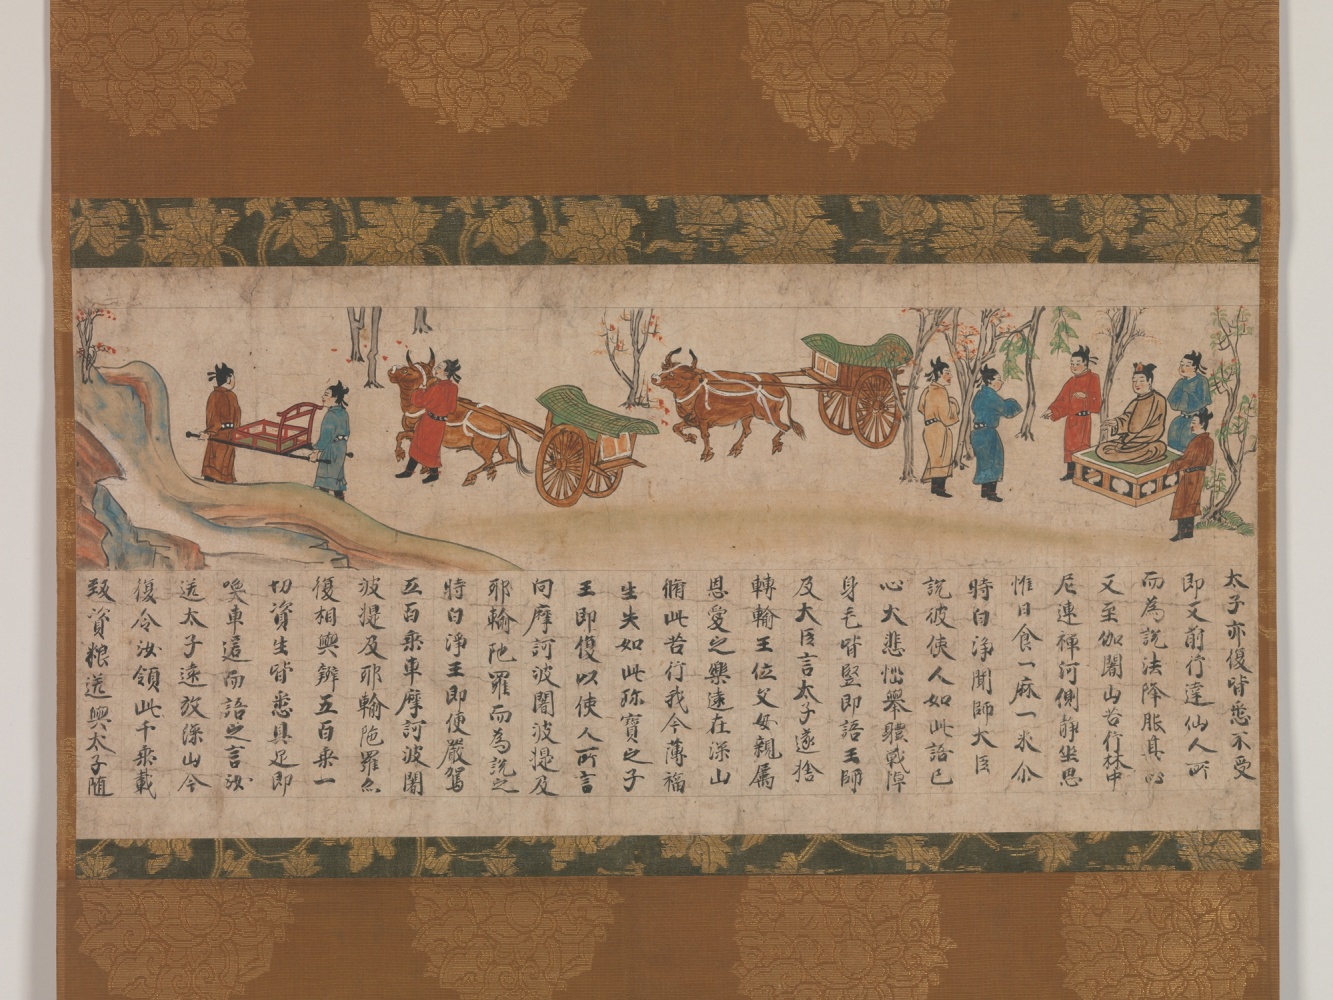 太子亦復皆悉不受
即又前行達仙人所
而為說法降脹其心
又至伽闍山苦行林中
尼連禪河側靜坐思
惟日食一麻一米尒
時白淨聞師大臣
說彼使人如此語已
心大悲惱舉體戰悼
身毛皆竪即語王師
及大臣言太子遂捨
轉輪王位父母親属
恩愛之樂遠在深山
脩此苦行我今薄福
生失如此珎寶之子
王即復以使人所言
向摩訶波闍波提及
耶輸陁羅而為說之
時白淨王即便嚴駕
五百乘車摩訶波闍
波提及耶輸陁羅亦
復相與辨五百乘一
切資生皆悉具足即
喚車匿而語之言汝
送太子遠放深山今
復令汝領此千乘載
致資粮送與太子隨